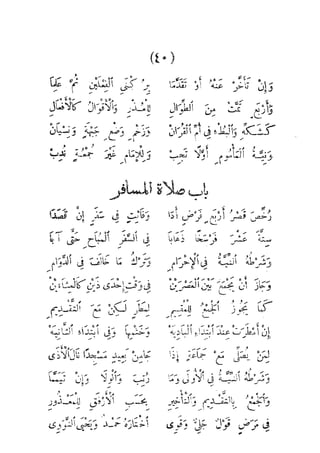 (٤٠)
وَإِنْ تَأَخَّرَ عَنْهُ أَوْ تَقَدَّمَا
وَأَرْبَعٍ تَمَّتْ مِنَ الطِّوَالِ لِلْعُذْرِ وَالْأَقْوَالُ كَالْأَفْعَالِ
كَشَكِّهِ وَالْبُطْءِ فِي أُمِّ الْقُرْآنْ وَزَحْمِ وَضْعِ جَبْهَةٍ وَنِسْيَانْ
وَنِيَّةُ الْمَأْمُومِ أَوَّلًا تَجِبْ وَلِلْإِمَامِ غَيْرَ جُمْعَةٍ نُدِبْ
باب صلاة المسافر
رُخِّصَ قَصْرُ أَرْبَعٍ فَرْضٍ أَدَا وَفَائِتٍ فِي سَفَرٍ إِنْ قَصَدَا
سِتَّةَ عَشْرَ فَرْسَخًا ذَهَابَا فِي السَّفَرِ الْمُبَاحِ حَتَّى آبَا
وَشَرْطُهُ النِّيَّةُ فِي الْإِحْرَامِ وَتَرْكُ مَا خَالَفَ فِي الدَّوَامِ
وَجَازَ أَنْ يَجْمَعَ بَيْنَ الْعَصْرَيْنْ فِي وَقْتِ إِحْدَى ذَيْنِ كَالْعِشَاءَيْنْ
كَمَا يَجُوزُ الْجَمْعُ لِلْمُقِيمِ لِمَطَرٍ لٰكِنْ مَعَ التَّقْدِيمِ
إِنْ أَمْطَرَتْ عِنْدَ ابْتِدَاءِ الْبَادِيَهْ وَخَتْمِهَا وَفِي ابْتِدَاءِ الثَّانِيَهْ
لِمَنْ يُصَلِّي مَعَ جَمَاعَةٍ إِذَا جَا مِنْ بَعِيدٍ مَسْجِدًا نَالَ الْأَذَى
وَشَرْطُهُ النِّيَّةُ فِي الْأُولَى وَمَا رُتِّبَ وَالْوِلَا وَإِنْ تَيَمَّمَا
وَالْجَمْعُ بِالتَّقْدِيمِ وَالتَّأْخِيرِ بِحَسَبِ الْأَرْفَقِ لِلْمَعْذُورِ
فِي مَرَضٍ قَوْلٌ جَلِيٌّ وَقَوِي اخْتَارَهُ حَمْدٌ وَيَحْيَى النَّوَوِي